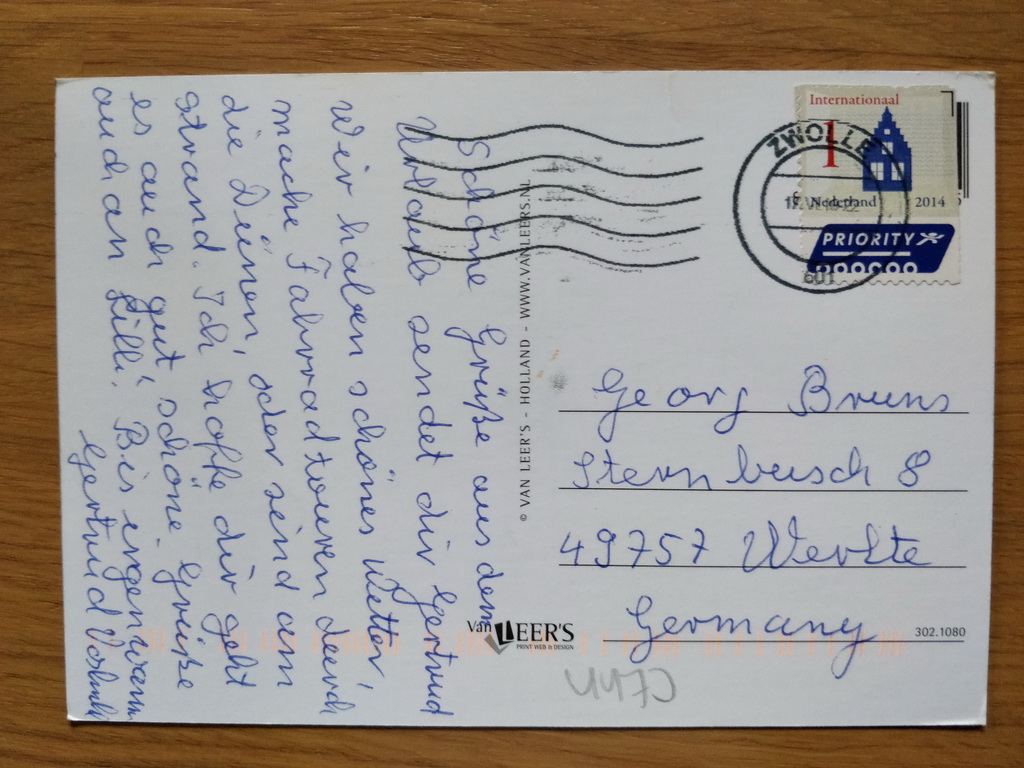 Schöne Grüße aus dem
Urlaub sendet dir Gertrud
Wir haben schönes Wetter,
mache Fahrradtouren durch
die Dünen, oder sind am
Strand. Ich hoffe dir geht
es auch gut, schöne Grüße
auch an Lilli. Bis irgenwann
Gertrud
© VAN LEER'S - HOLLAND - WWW.VANLEERS.NL
Internationaal
1
Nederland 2014
PRIORITY
ZWOLLE
601
Georg Bruns
Sternbusch 8
49757 Werlte
Germany
Van LEER'S
PRINT WEB & DESIGN
302.1080